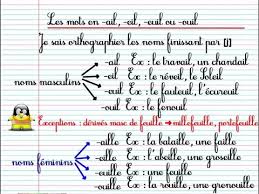 Les mots en -ail, -eil, -euil ou -ouil
Je sais orthographier les noms finissant par [j]
-ail Ex : le travail, un chandail
-eil Ex : le réveil, le Soleil
noms masculins
-euil Ex : le fauteuil, l'écureuil
-ouil Ex : le fenouil
Exceptions : dérivés masc de feuille → millefeuille, portefeuille
-aille Ex : la bataille, une faille
-eille Ex : l'abeille, une groseille
noms féminins
-euille Ex : la feuille
-ouille Ex : la rouille, une grenouille